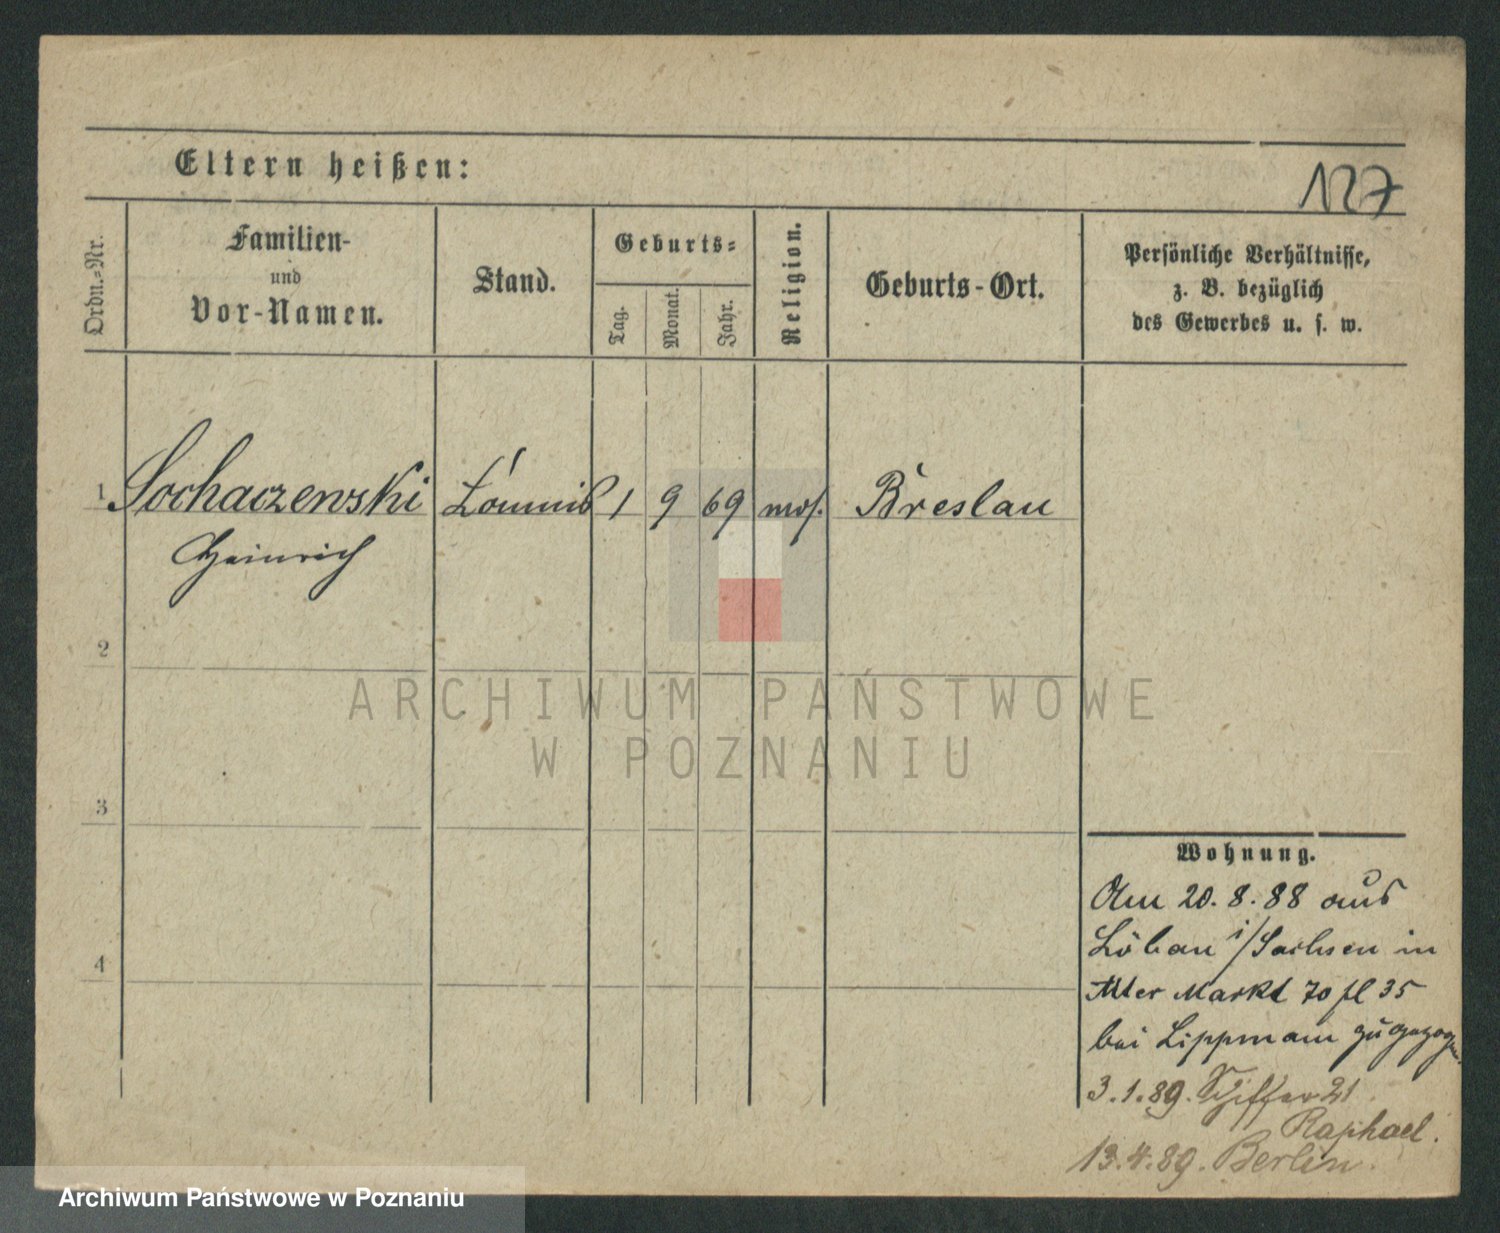 Eltern heißen:
127
Ordn.-Nr.
Familien-
und
Vor-Namen.
Stand.
Geburts-
Tag.
Monat.
Jahr.
Religion.
Geburts-Ort.
Persönliche Verhältnisse,
z. B. bezüglich
des Gewerbes u. s. w.
1 Sochaczewski Commis 1 9 69 mos. Breslau
Heinrich
2
3
4
Wohnung.
Am 20. 8. 88 aus
Löbau i/Sachsen in
Alter Markt 70 fl 35
bei Lippmann zugezogen
3. 1. 89. 21
Raphael.
13. 4. 89. Berlin.
ARCHIWUM PAŃSTWOWE
W POZNANIU
Archiwum Państwowe w Poznaniu